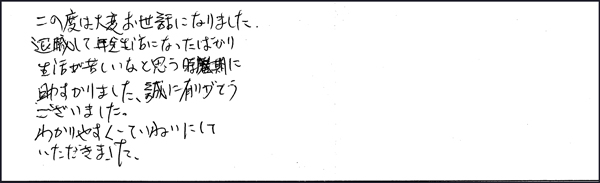 この度は大変お世話になりました.
退職して年金生活になったばかり
生活が苦しいなと思う時期に
助すかりました、誠に有りがとう
ございました。
わかりやすくていねいにして
いただきました、